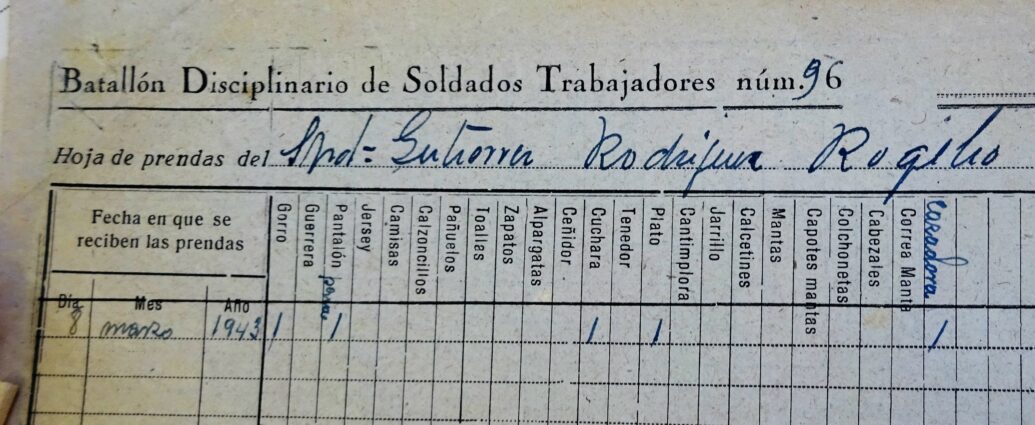 Batallón Disciplinario de Soldados Trabajadores núm. 96
Hoja de prendas del Spd- Gutiérrez Rodríguez Rogelio
Fecha en que se
reciben las prendas
Día Mes Año
Gorro
Guerrera
Pantalón
Jersey
Camisas
Calzoncillos
Pañuelos
Toallas
Zapatos
Alpargatas
Ceñidor
Cuchara
Tenedor
Plato
Cantimplora
Jarrillo
Calcetines
Mantas
Capotes mantas
Colchonetas
Cabezales
Correa Manta
Cazadora
8 marzo 1943 1 1 1 1 1